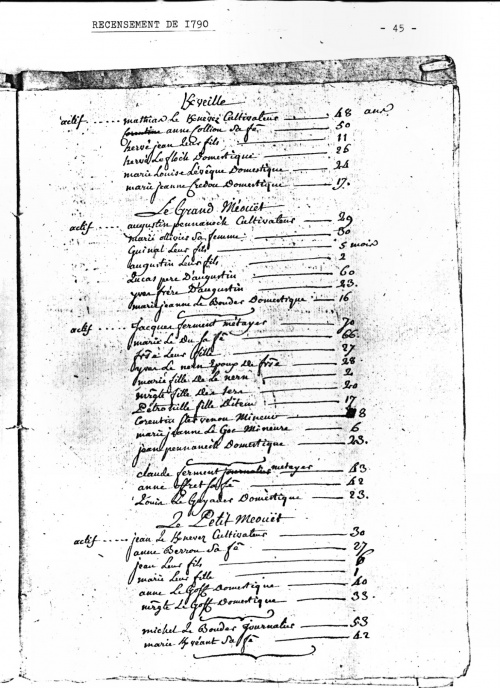 RECENSEMENT DE 1790
- 45 -
Kerveille
actif mathias Le Kenevez Cultivateur 48 ans
anne Collion Sa fe 50
hervé jean leurs fils 11
hervé Le floch Domestique 26
marie Louise Lévêque Domestique 24
marie jeanne Credou Domestique 17.
Le Grand Méouët
actif augustin pennaneih Cultivateur 29
marie olivier Sa femme 30
Guinal Leur fils 5 mois
augustin Leur fils 2
Lucas pere D'augustin 60
yves frère D'augustin 23.
marie jeanne Le Bondes Domestique 16
actif Jacques ferment métayer 70
marie Le Du Sa fe 66
Leur fille 27
yves Le nern Epoux de 28
marie fille de Le nern 2
fille 20
fille 17
Corentin Mineur 8
marie jeanne Le Goc Mineure 6
jean pennaneih Domestique 23.
claude ferment journalier métayer 43
anne offret Sa fe 42
Louis Le Guyader Domestique 23.
Le Petit Meouët
actif jean Le Kenevez Cultivateur 30
anne Berrou Sa fe 27
jean Leur fils 6
marie Leur fille 1
anne Le Goff Domestique 40
mrgte Le Goff Domestique 33.
michel Le Bondes journalier 53
marie Kvéant Sa fe 42